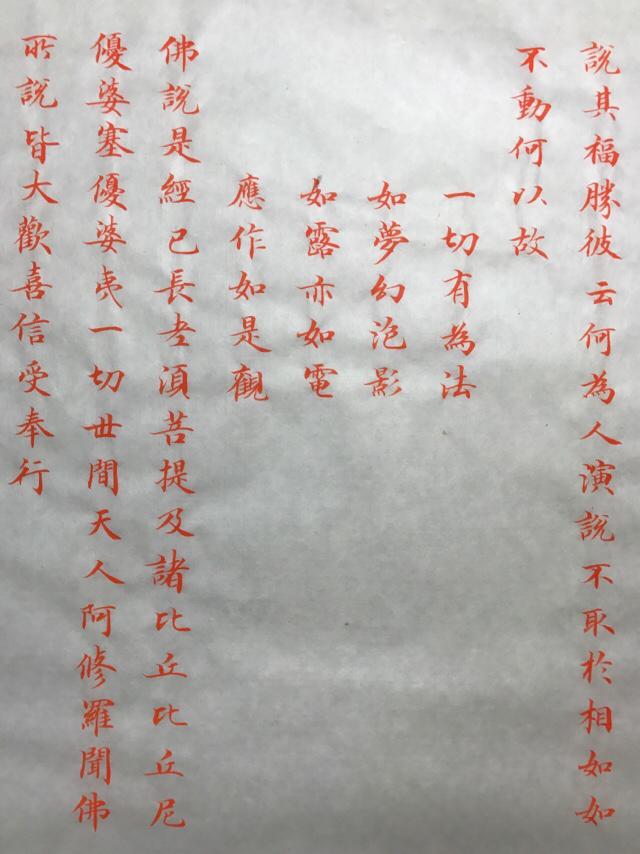 說其福勝彼云何為人演說不取於相如如
不動何以故
一切有為法
如夢幻泡影
如露亦如電
應作如是觀
佛說是經已長老須菩提及諸比丘比丘尼
優婆塞優婆夷一切世間天人阿修羅聞佛
所說皆大歡喜信受奉行